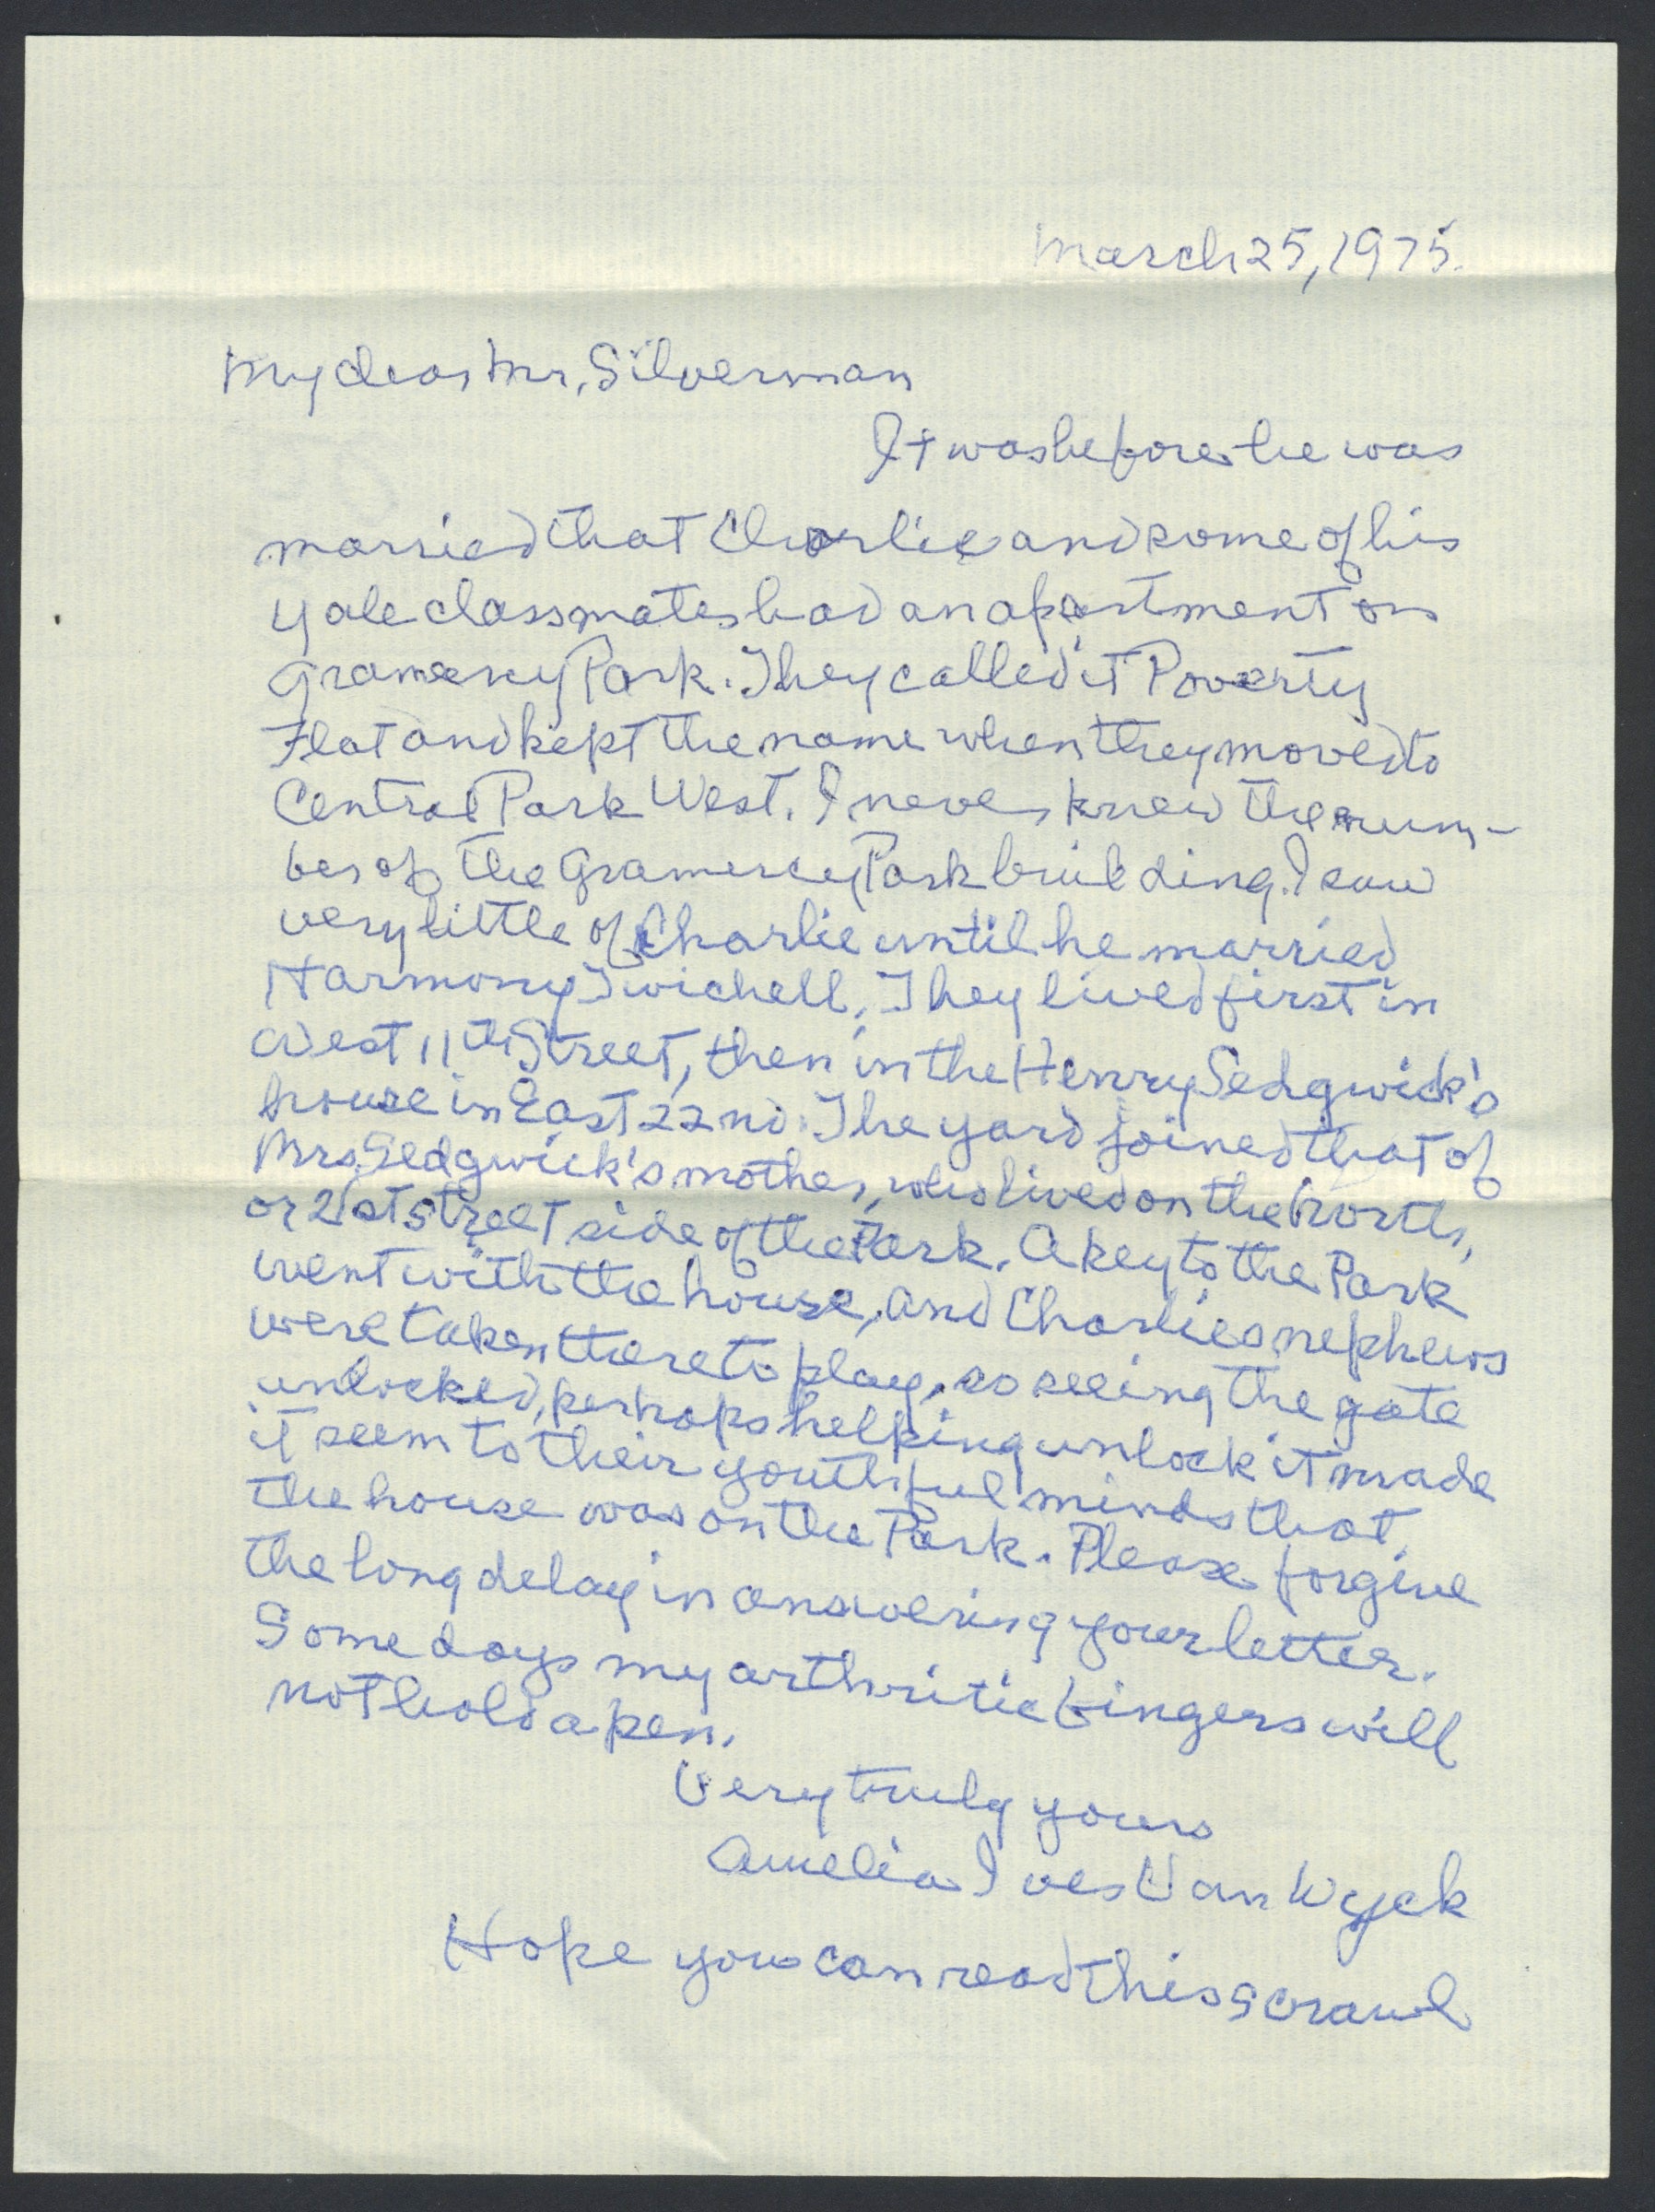 March 25, 1975.
My dear Mr. Silverman
It was before he was
married that Charlie and some of his
Yale classmates had an apartment on
Gramercy Park. They called it Poverty
Flat and kept the name when they moved to
Central Park West. I never knew the num-
ber of the Gramercy Park building. I saw
very little of Charlie until he married
Harmony Twichell. They lived first in
West 11th Street, then in the Henry Sedgwick's
house in East 22nd. The yard joined that of
Mrs. Sedgwick's mother, who lived on the north,
or 21st Street side of the Park. A key to the Park
went with the house, and Charlies nephews
were taken there to play, so seeing the gate
unlocked, perhaps helping unlock it made
it seem to their youthful minds that
the house was on the Park. Please forgive
the long delay in answering your letter.
Some days my arthritic fingers will
not hold a pen.
Very truly yours
Amelia Ives Van Wyck
Hope you can read this scrawl